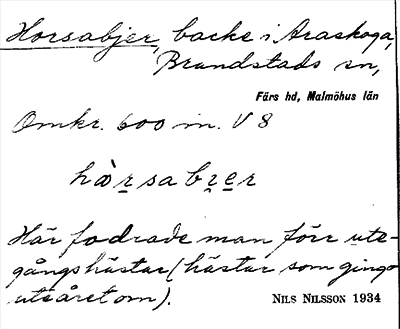 Horsabjer, backe i Araskoga,
Brandstads sn,
Färs hd, Malmöhus län
Omkr. 600 m. V 8
Här fodrade man förr ute-
gångshästar (hästar som gingo
ute året om).
NILS NILSSON 1934